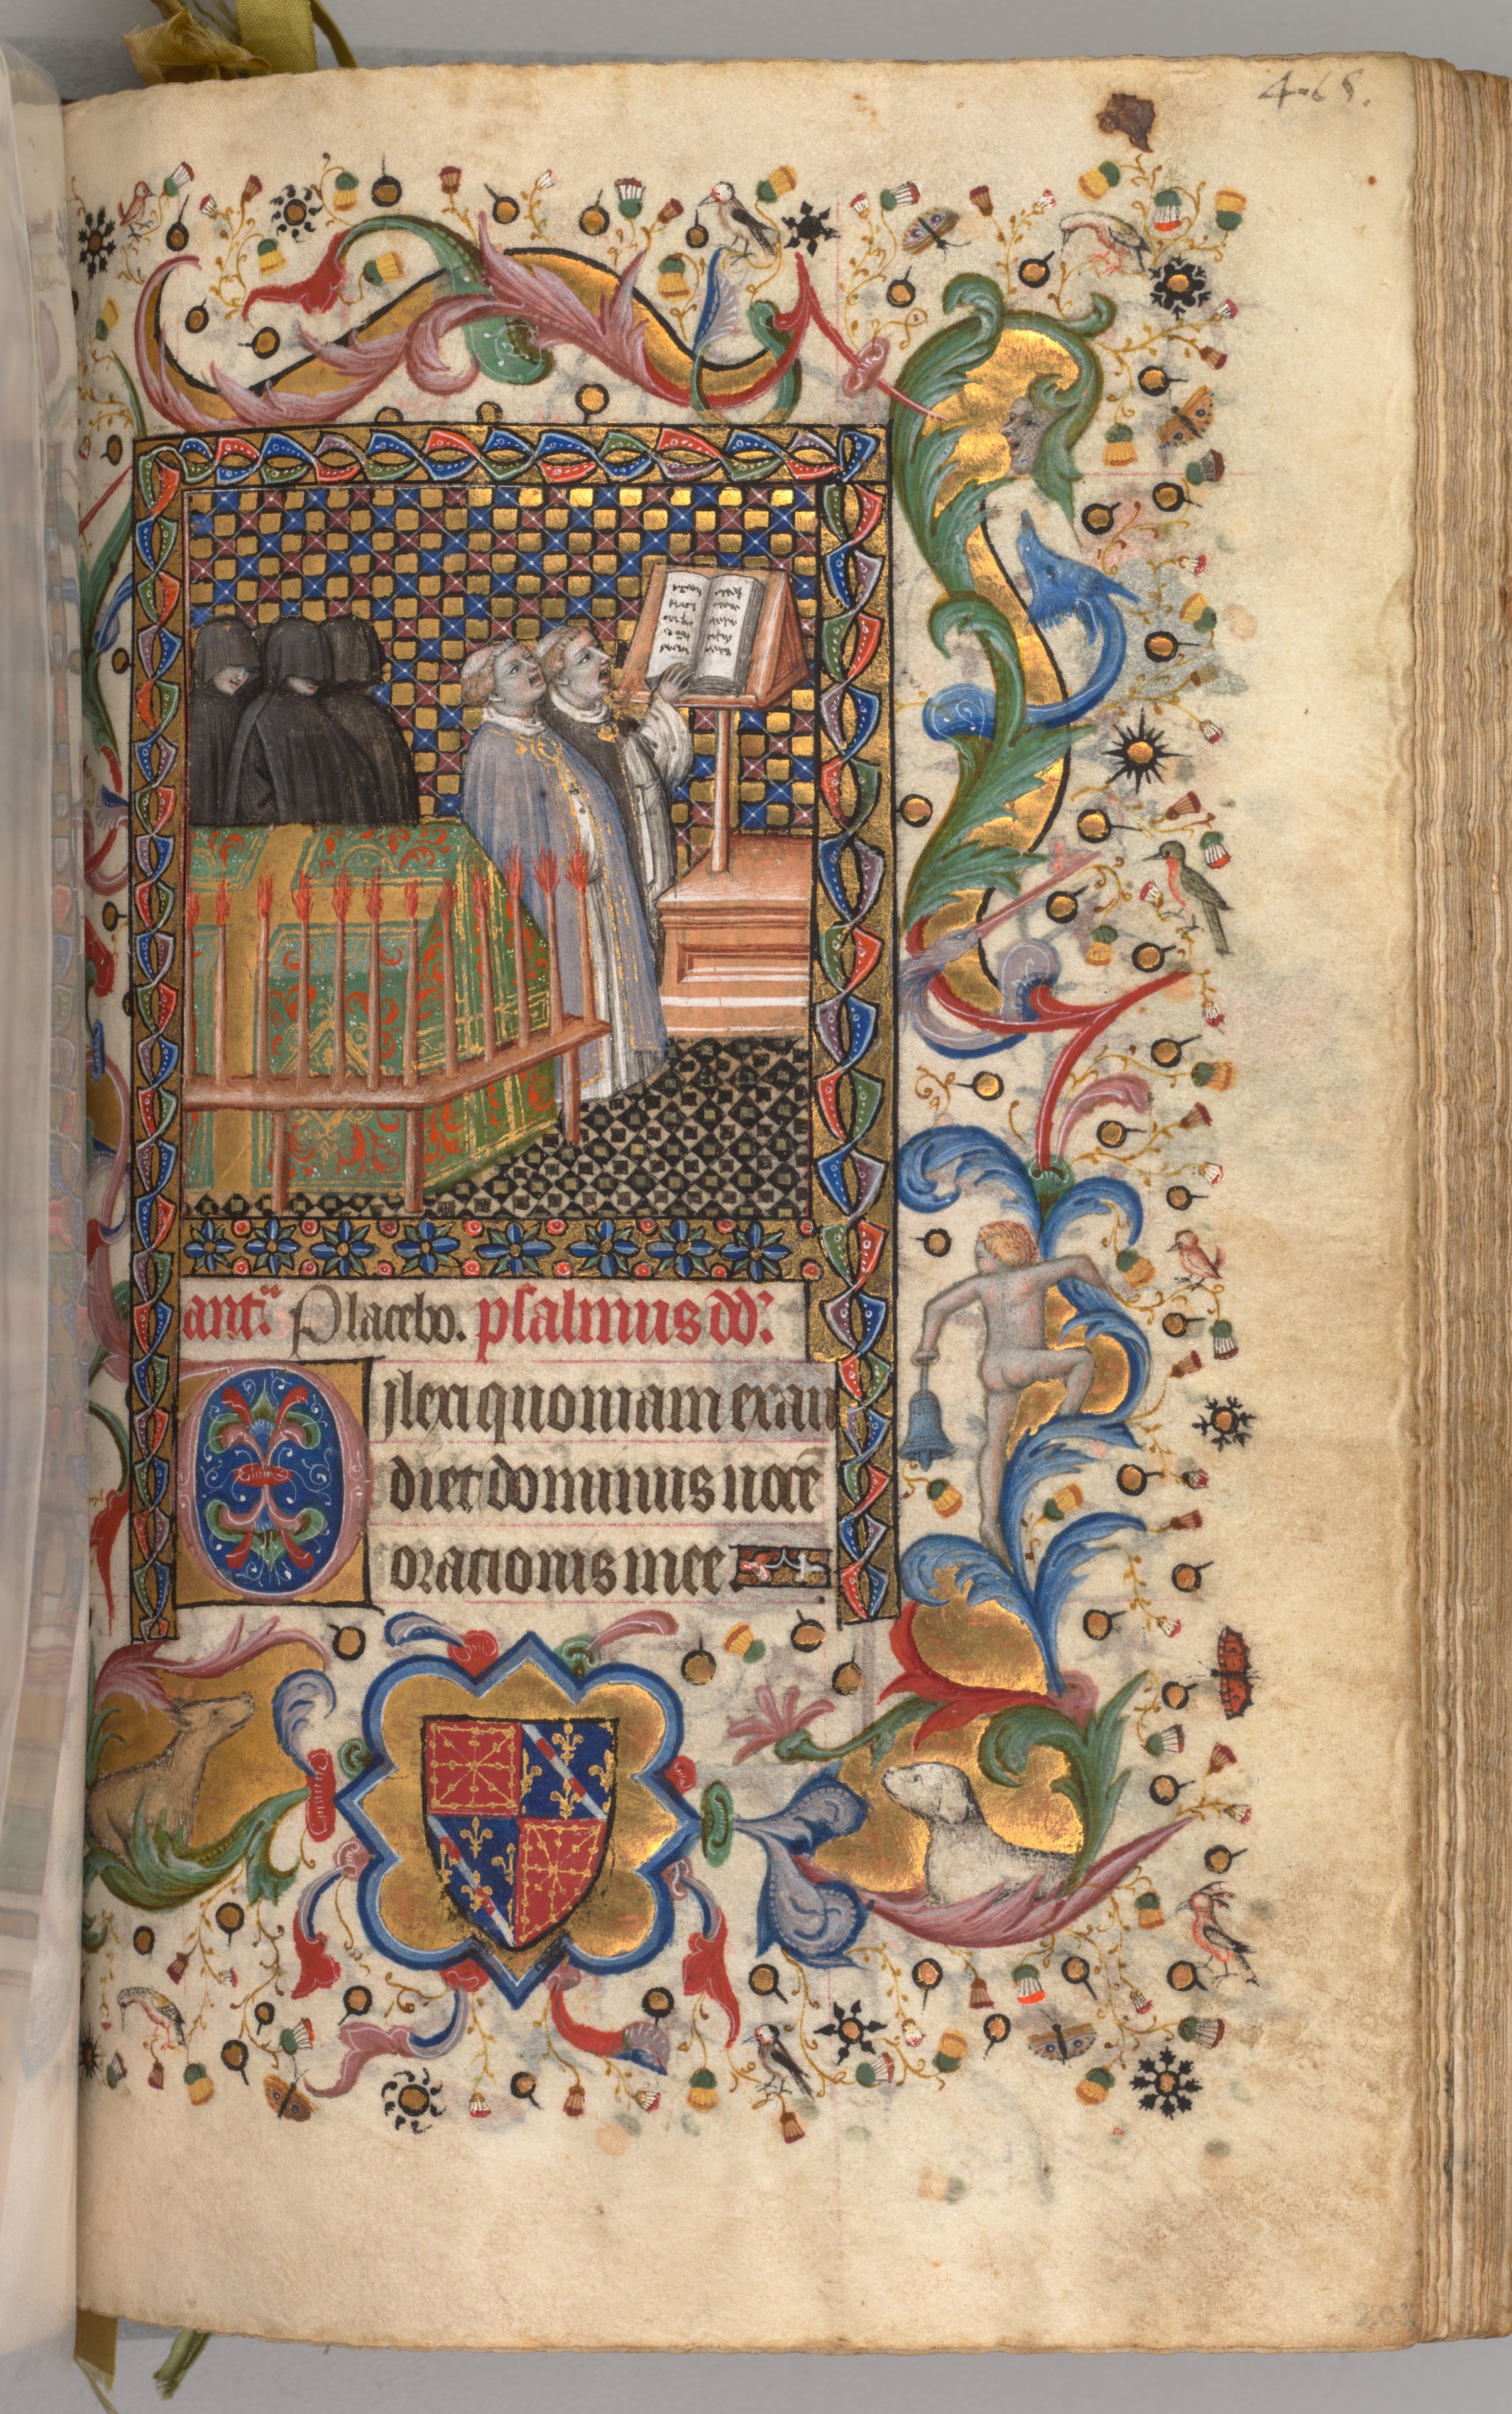 465.
ant.ª Placebo. psalmus dd.
Dilexi quoniam exau
diet dominus vocē
orationis mee
203